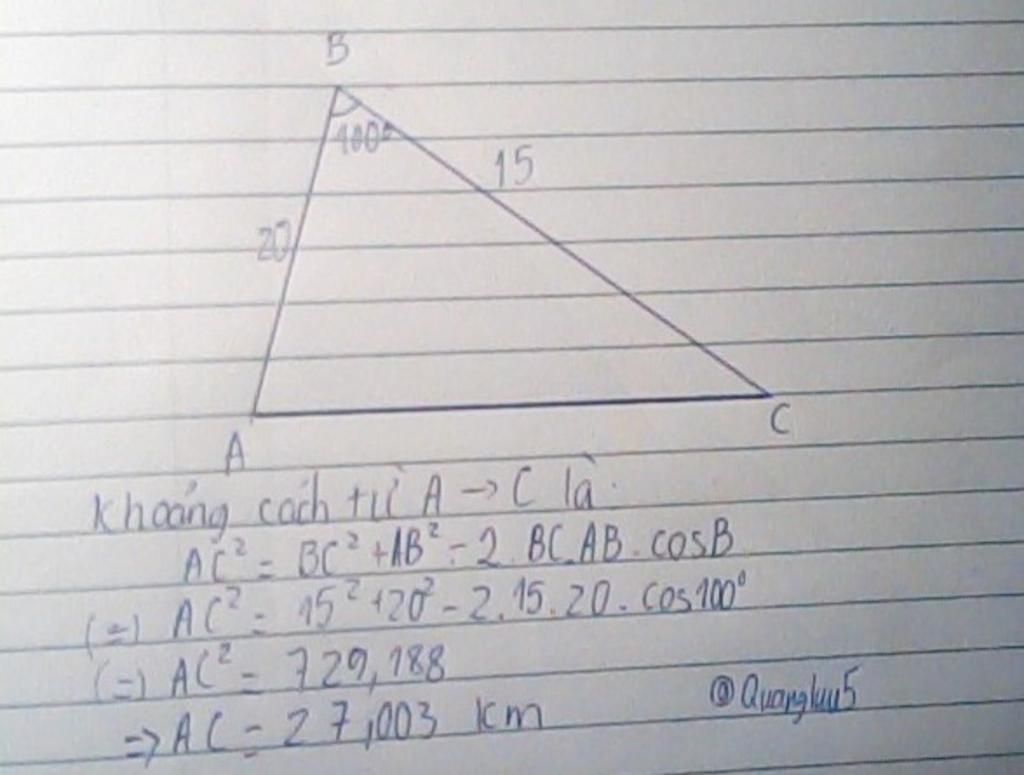 B
100°
15
20
A
C
Khoảng cách từ A → C là:
AC² = BC² + AB² - 2. BC.AB. cosB
(=) AC² = 15² + 20² - 2.15.20. cos100°
(=) AC² = 729,188
=> AC = 27,003 km
@Quangluu5